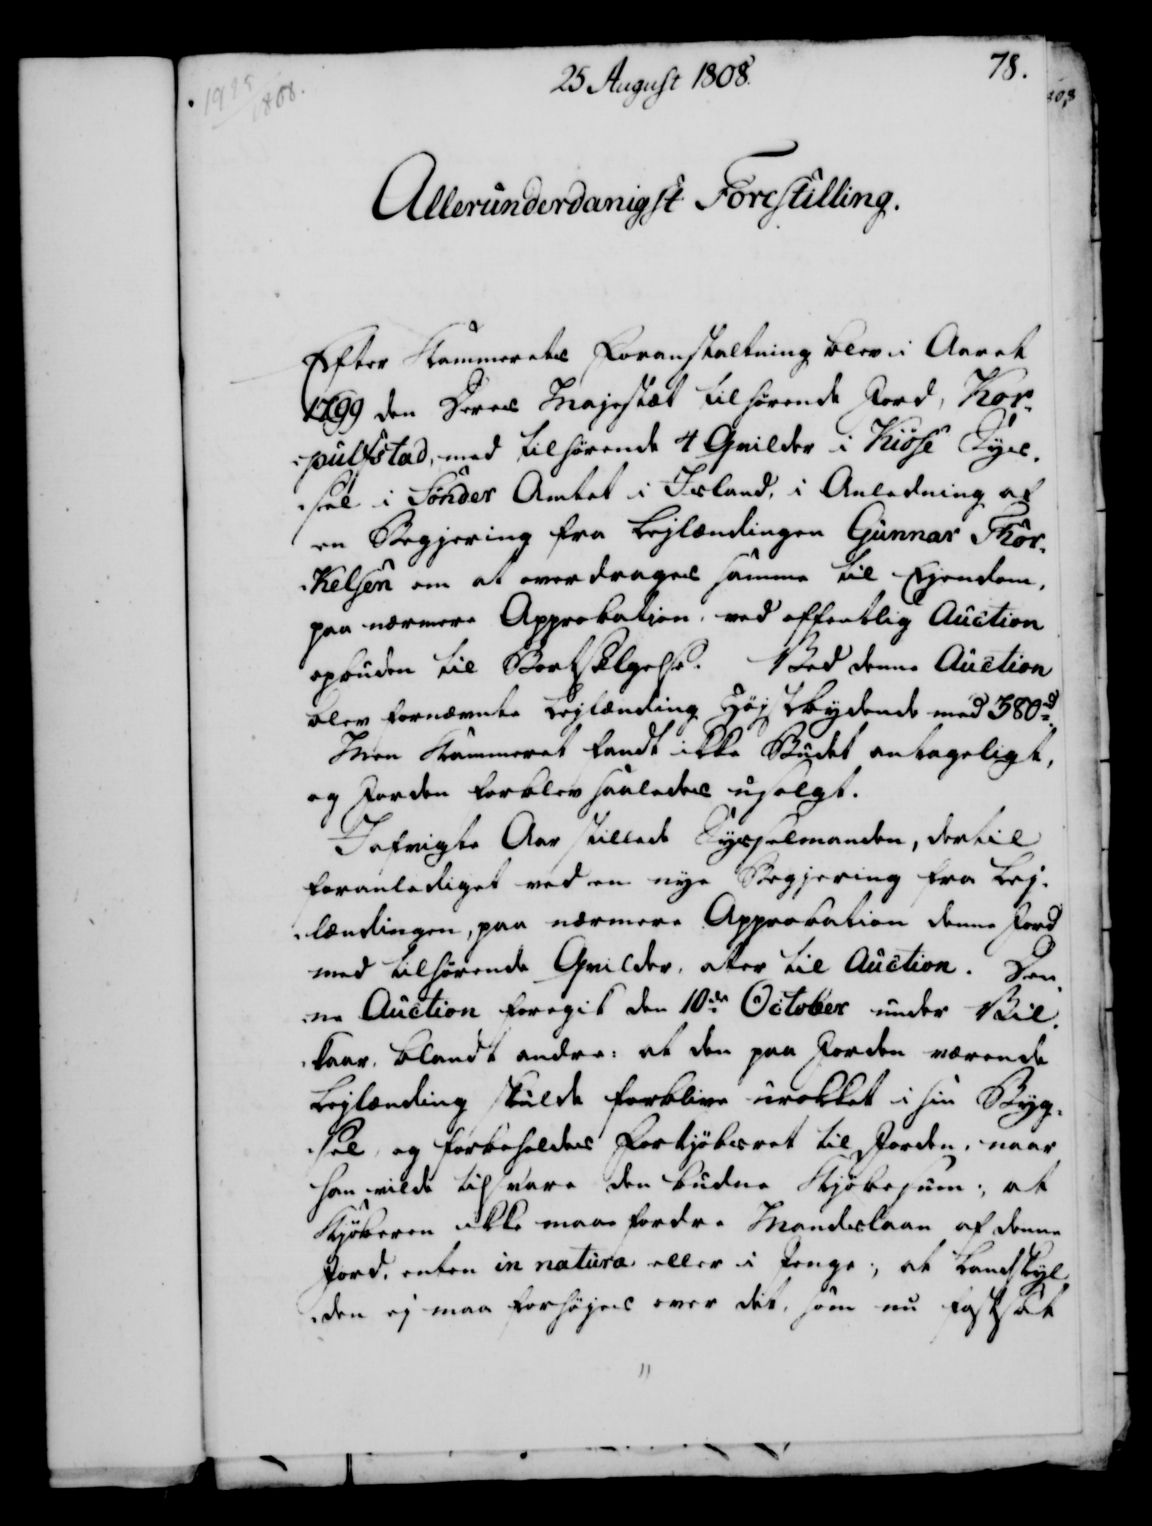 25 August 1808.
78.
1925
1808.
Allerunderdanigst Forestilling.
Efter Kammerets Foranstaltning blev i Aaret
1799 den Deres Majestæt tilhørende Jord, Kor-
pulfstad, med tilhørende 4 Qvilder i Kiose Sys-
sel i Sønder Amtet i Island, i Anledning af
en Begjering fra Lejlændingen Gunnar Thor-
kelsen om at overdrages samme til Ejendom,
paa nærmere Approbation, ved offentlig Auction
opbuden til Bortsælgelse. Ved denne Auction
blev fornævnte Lejlænding Højstbydende med 380 rd.
Men Kammeret fandt ikke Budet antageligt,
og Jorden forblev saaledes usolgt.
I afvigte Aar stillede Sysselmanden, dertil
foranlediget ved en nye Begjering fra Lej-
lændingen, paa nærmere Approbation denne Jord
med tilhørende Qvilder, atter til Auction. Den-
ne Auction foregik den 10de October under Vil-
kaar, blandt andre: at den paa Jorden værende
Lejlænding skulde forblive urokket i sin Byg-
sel, og forbeholdes Forkjøbsret til Jorden, naar
han vilde tilsvare den budne Kjøbesum; at
Kjøberen ikke maae fordre Mandslaan af denne
Jord, enten in natura eller i Penge; at Landskyl-
den ej maa forhøjes over det, som nu fastsat